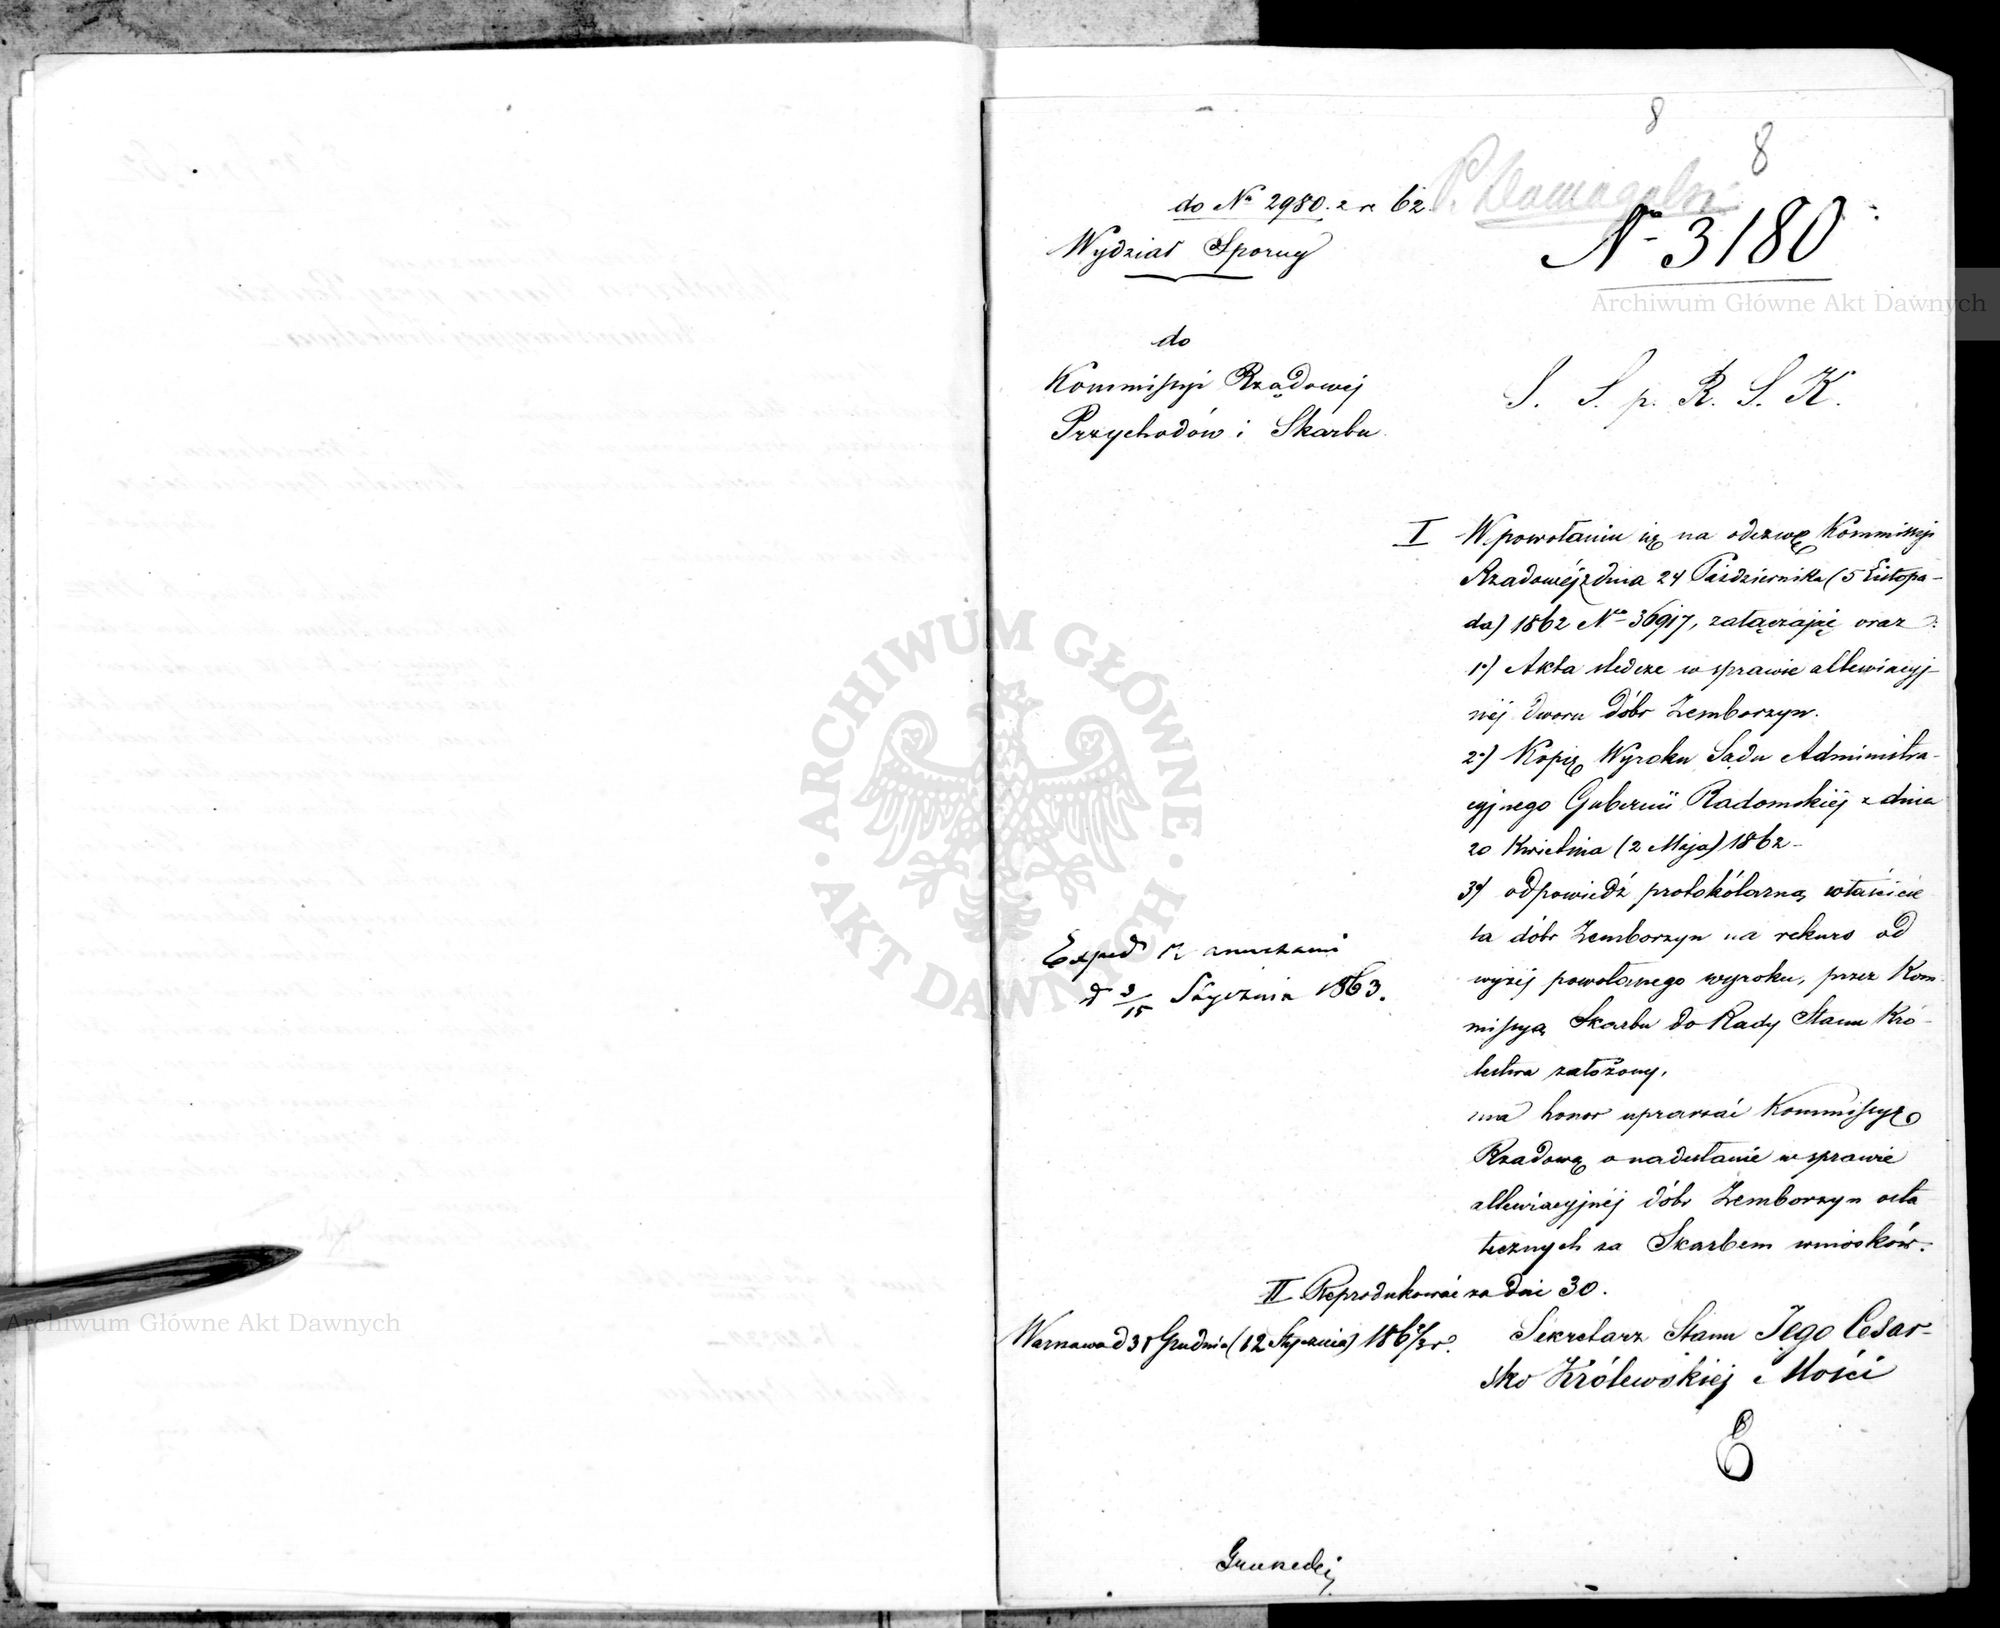 8
8
do Nr 2980. z r 62.
Wydział Sporny
No 3180
do
Kommissyi Rządowej
Przychodów i Skarbu
S. S. p. R. S. K.
I W powołaniu się na odezwę Kommissyi
Rządowéj z dnia 24 Października (5 Listopa-
da) 1862 No 36917, załączając oraz:
1o) Akta śledcze w sprawie allewiacyj-
néj dworu dóbr Zemborzyn.
2o) Kopię Wyroku Sądu Administra-
cyjnego Gubernii Radomskiéj z dnia
20 Kwietnia (2 Maja) 1862 -
3o) odpowiedź protokólarną właścicie
la dóbr Zemborzyn na rekurs od
wyżéj powołanego wyroku, przez Kom
missyą Skarbu do Rady Stanu Kró-
lestwa założony,
ma honor upraszać Kommissyę
Rządową o nadesłanie w sprawie
allewiacyjnéj dóbr Zemborzyn osta
tecznych za Skarbem wniosków.
Exped
d 3/15 Stycznia 1863.
II Reprodukować za dni 30.
Warszawa d 31 Grudnia (12 Stycznia) 1862/3 r.
Sekretarz Stanu Jego Cesar-
sko Królewskiéj Mości
Archiwum Główne Akt Dawnych
Archiwum Główne Akt Dawnych
ARCHIWUM GŁÓWNE
AKT DAWNYCH